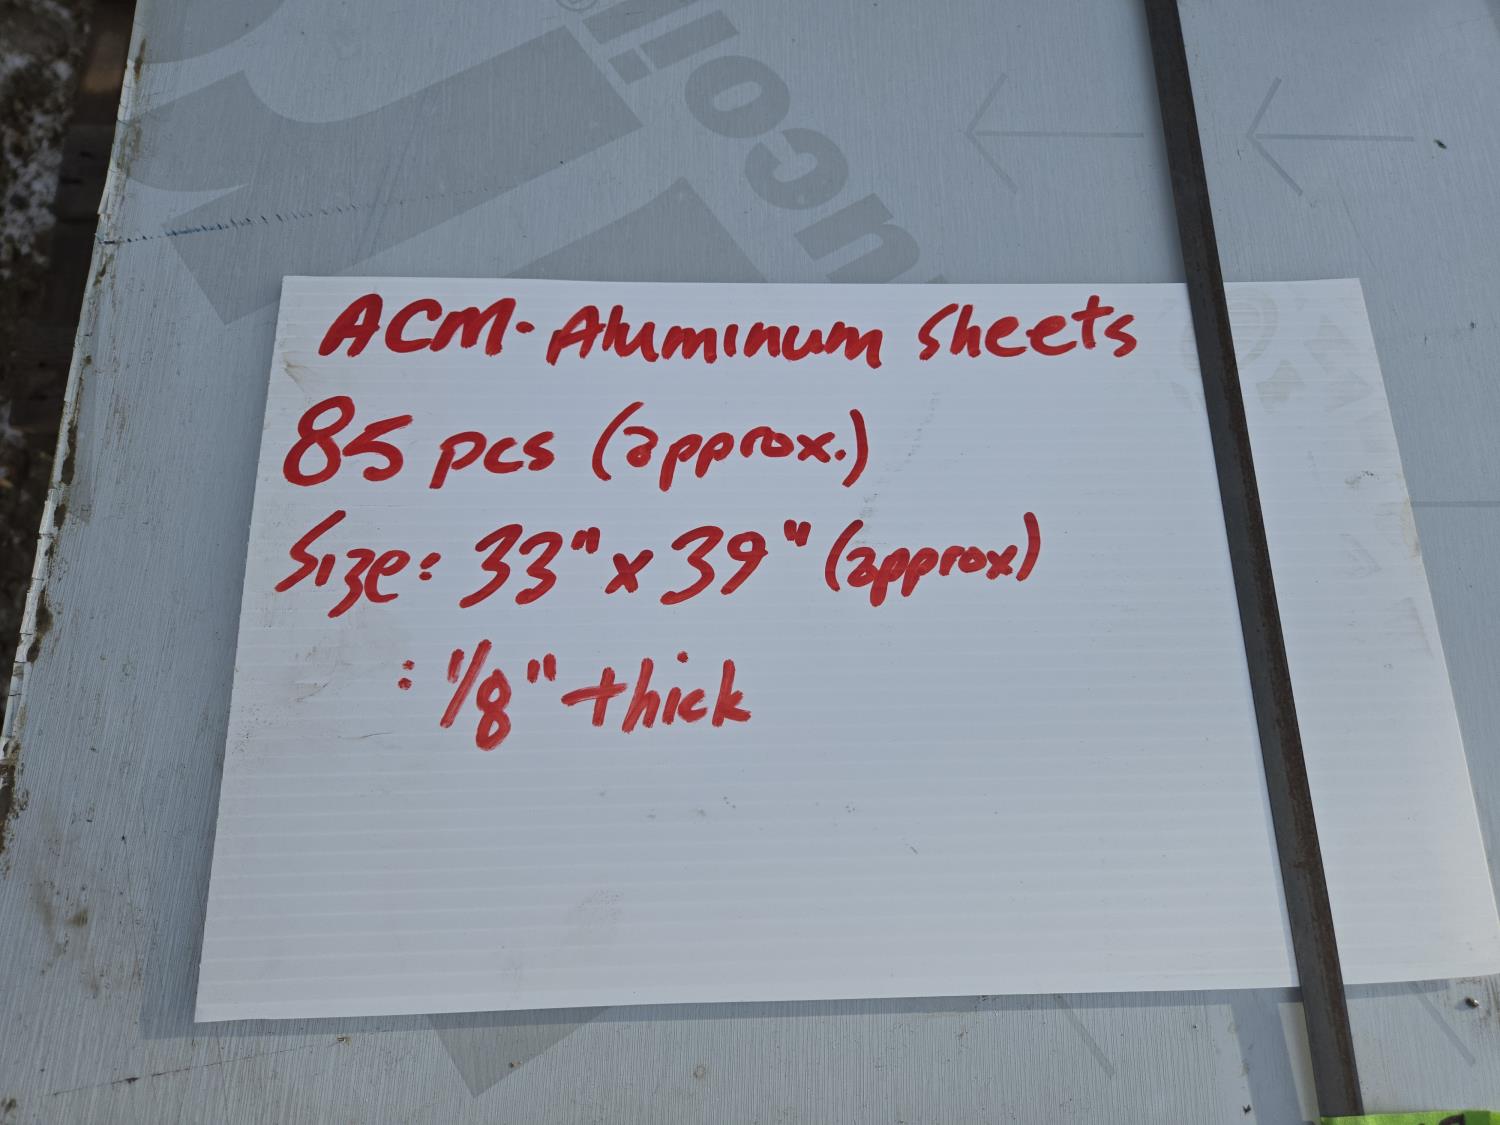 ACM. Aluminum Sheets
85 pcs (approx.)
Size: 33" x 39" (approx)
: 1/8" thick